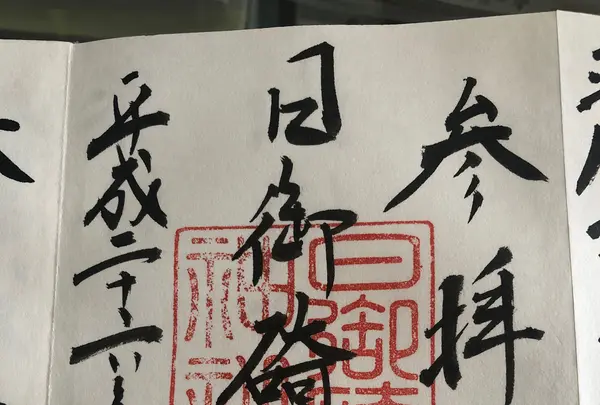 参拝
日御碕
平成二十六
日御
神